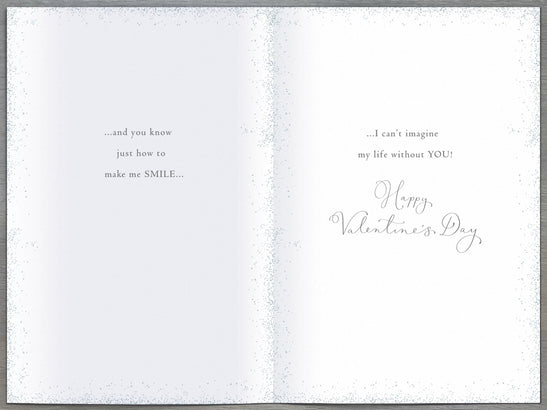 ...and you know
just how to
make me SMILE...
...I can't imagine
my life without YOU!
Happy
Valentine's Day